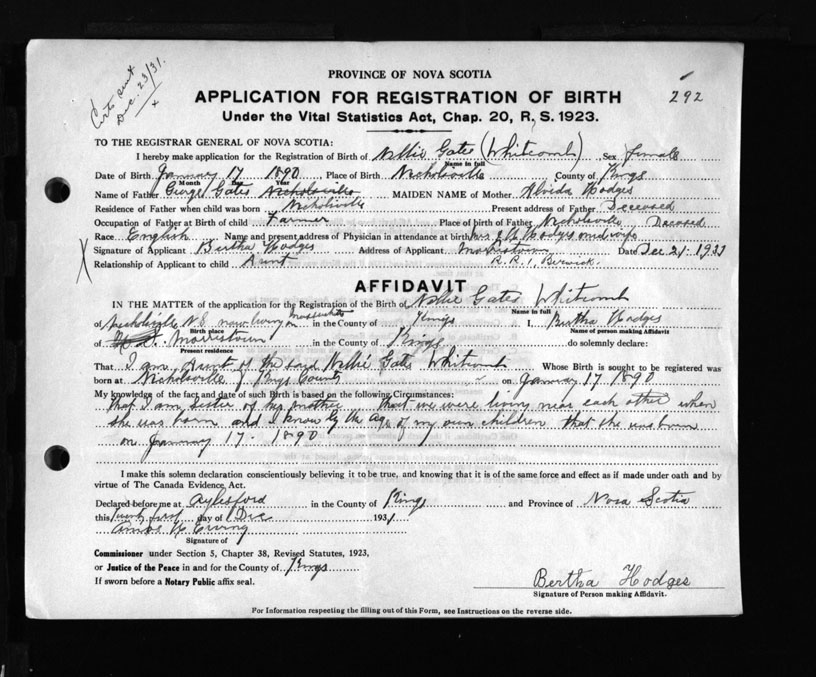 Certs sent
Dec. 23/31.
x
292
PROVINCE OF NOVA SCOTIA
APPLICATION FOR REGISTRATION OF BIRTH
Under the Vital Statistics Act, Chap. 20, R. S. 1923.
TO THE REGISTRAR GENERAL OF NOVA SCOTIA:
I hereby make application for the Registration of Birth of Nellie Gates (Whitcomb) Sex female
Name in full
Date of Birth January 17 1890 Place of Birth Nicholsville County of Kings
Month Day Year
Name of Father George Gates Nicholsville MAIDEN NAME of Mother Alveida Hodges
Residence of Father when child was born Nicholsville Present address of Father Deceased
Occupation of Father at Birth of child Farmer Place of birth of Father Nicholsville Deceased
Race English Name and present address of Physician in attendance at birth Mrs midwife
Signature of Applicant Bertha Hodges Address of Applicant Morristown Date Dec 21 1931
Relationship of Applicant to child Aunt R. R. 1, Berwick.
AFFIDAVIT
IN THE MATTER of the application for the Registration of the Birth of Nellie Gates Whitcomb
Name in full
of Nicholsville N S now living in Massachusetts in the County of Kings I, Bertha Hodges
Birth place Name of person making Affidavit
of Morristown in the County of Kings do solemnly declare:
Present residence
That I am Aunt of the said Nellie Gates Whitcomb Whose Birth is sought to be registered was
born at Nicholsville Kings County on January 17 1890
My knowledge of the fact and date of such Birth is based on the following Circumstances:
that I am sister of her mother that we were living near each other when
she was born and I know by the age of my own children that she was born
on January 17. 1890
I make this solemn declaration conscientiously believing it to be true, and knowing that it is of the same force and effect as if made under oath and by
virtue of The Canada Evidence Act.
Declared before me at Aylesford in the County of Kings and Province of Nova Scotia
this twenty first day of Dec 1931
Amos Ewing
Signature of
Commissioner under Section 5, Chapter 38, Revised Statutes, 1923,
or Justice of the Peace in and for the County of Kings
If sworn before a Notary Public affix seal.
Bertha Hodges
Signature of Person making Affidavit.
For Information respecting the filling out of this Form, see Instructions on the reverse side.